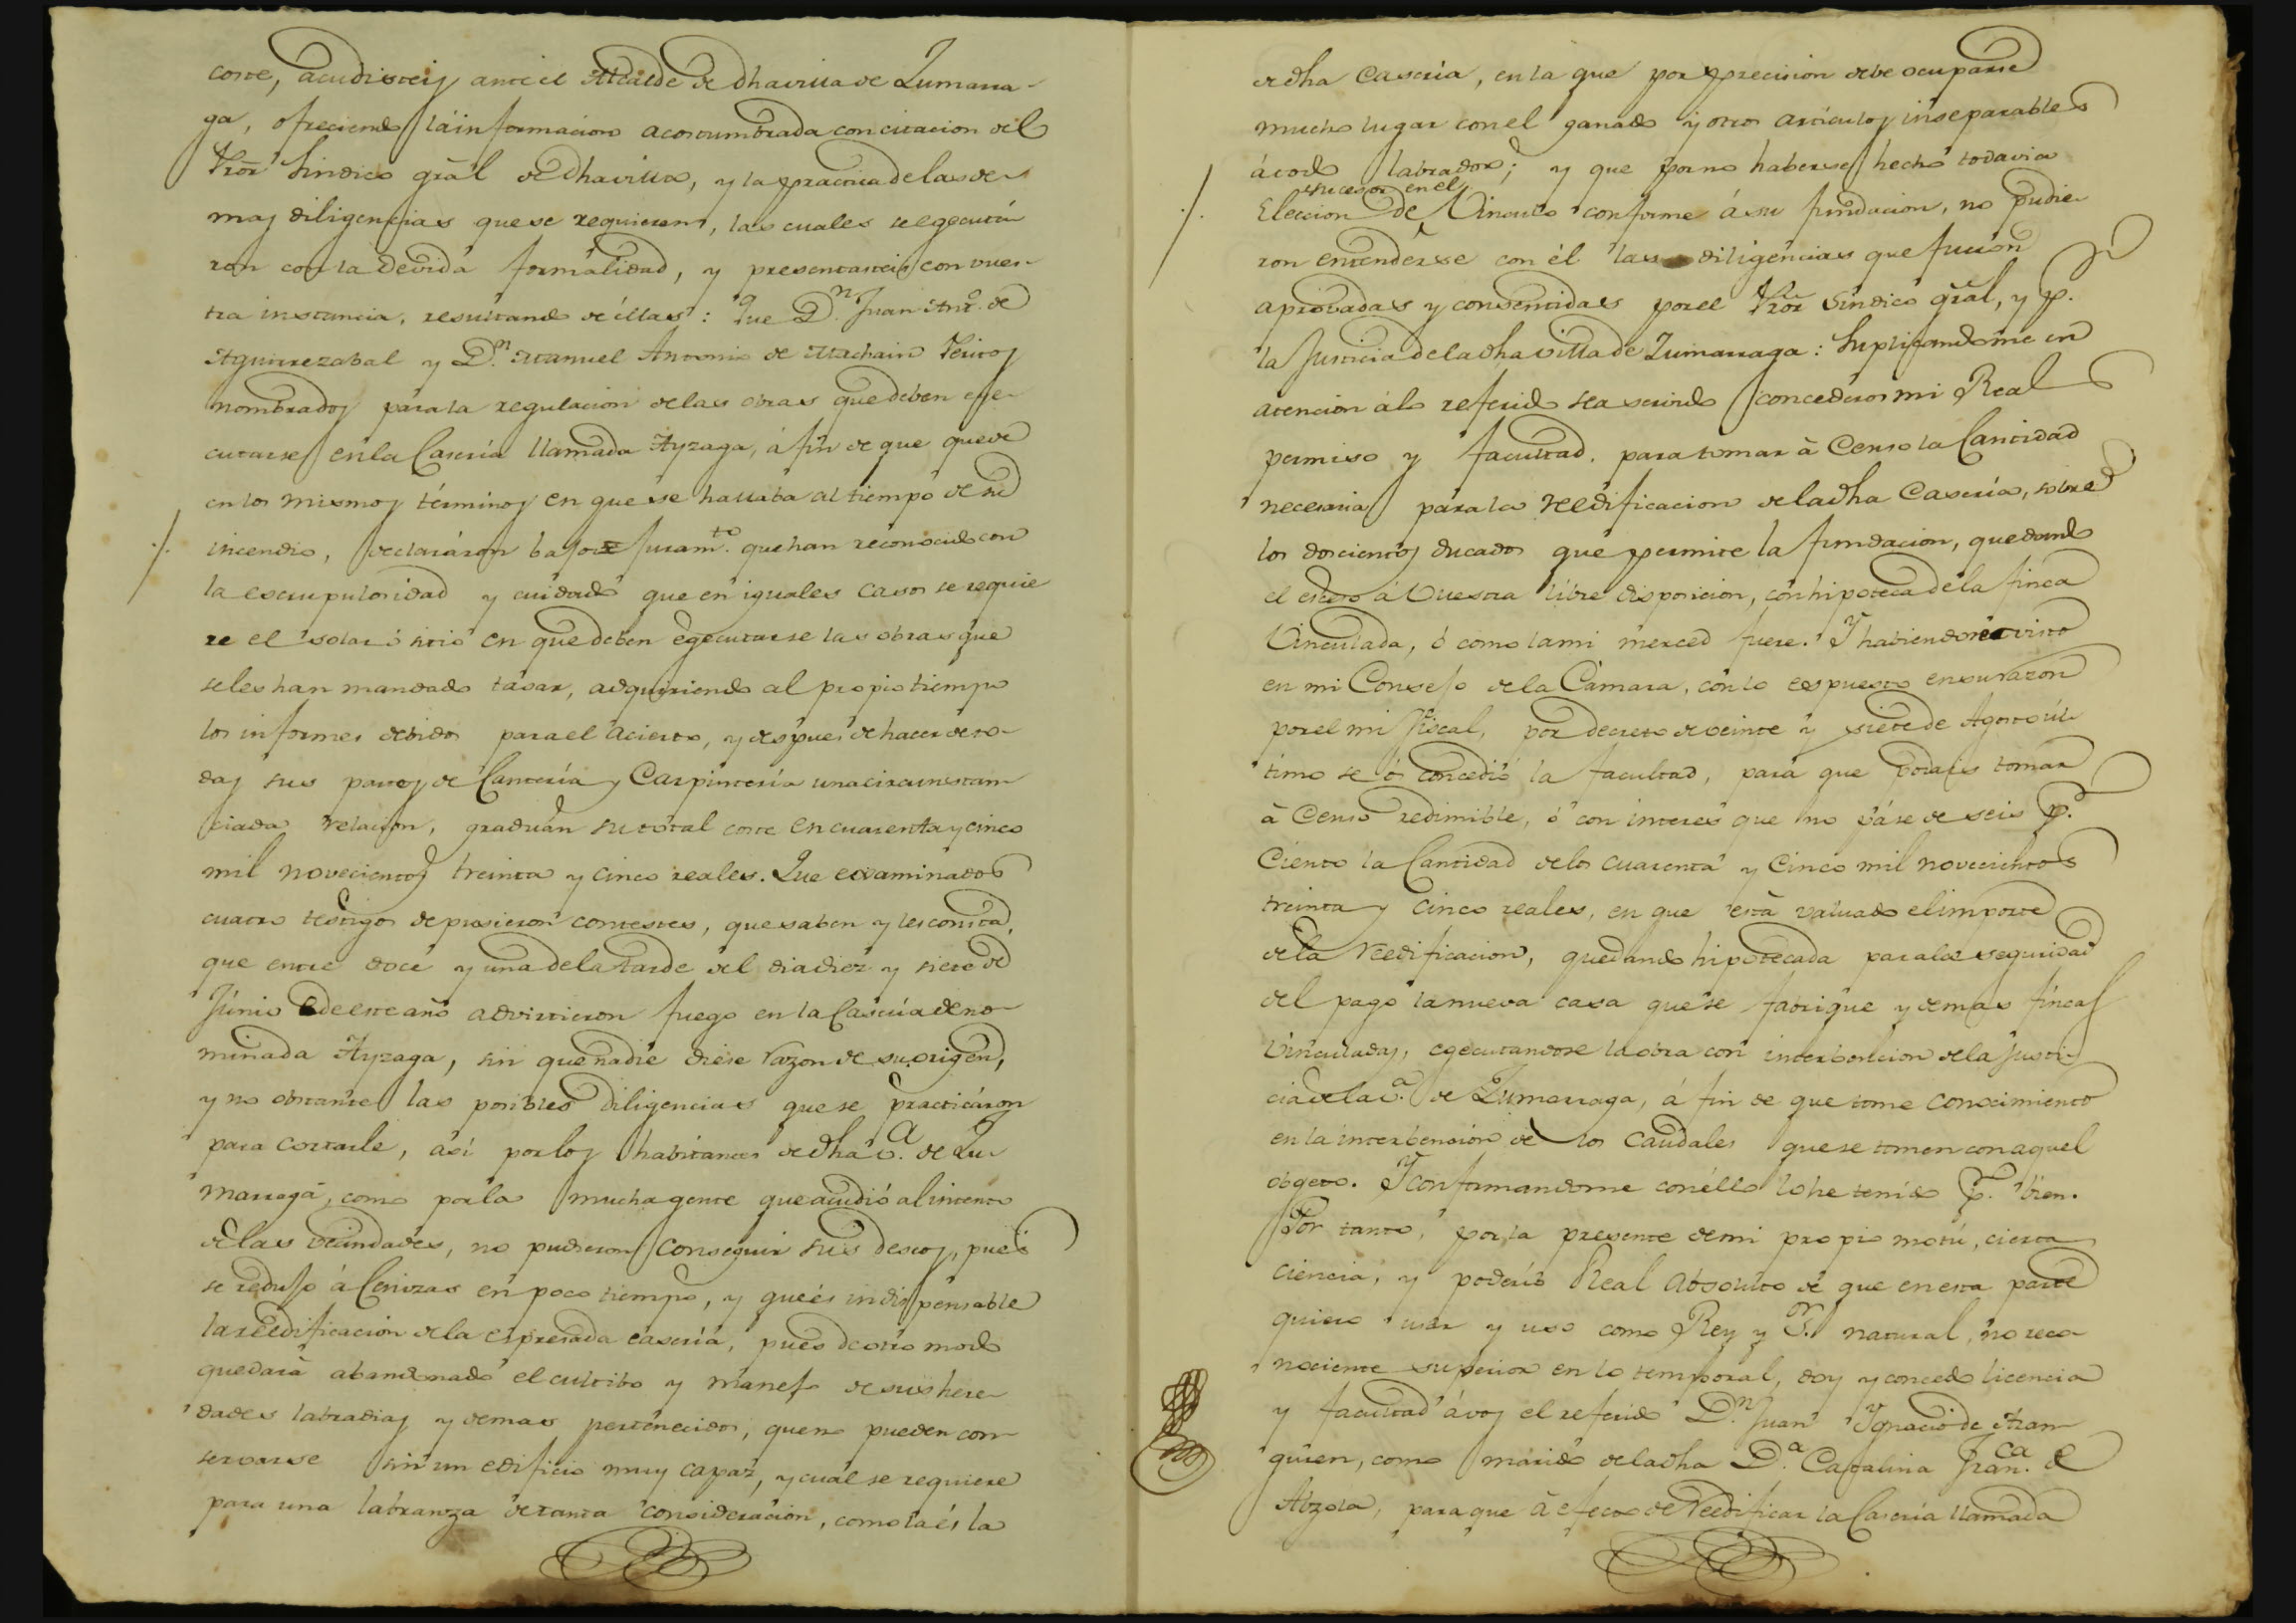 corte, acudisteis ante el Alcalde de dha villa de Zumarra-
ga, ofreciendo la informacion acostumbrada con citacion del
Pror Sindico gral de dha villa, y la practica de las de-
mas diligencias que se requieren, las cuales se egecuta-
ron con la devida formalidad, y presentasteis con vues-
tra instancia, resultando de éllas: Que Dn. Juan Anto. de
Aguirrezabal y Dn. Manuel Antonio de Machain Peritos
nombrados para la regulacion de las obras que deben ege-
cutarse en la Casería llamada Ayzaga, á fin de que quede
en los mismos términos en que se hallaba al tiempo de su
incendio, declaráron bajo de juramto. que han reconocido con
la escrupulosidad y cuidado que en iguales casos se requie
re el solar ó sitio en que deben egecutarse las obras que
se les han mandado tasar, adquiriendo al propio tiempo
los informes debidos para el acierto, y despues de hacer de to-
das sus partes de Cantería y Carpintería una circunstan-
ciada relacion, gradúan su total coste en cuarenta y cinco
mil novecientos treinta y cinco reales. Que examinados
cuatro testigos depusieron contestes, que saben y les consta,
que entre doce y una de la tarde del dia diez y siete de
Júnio de este año advirtieron fuego en la Casería deno-
minada Ayzaga, sin que nadie diese razon de su origen,
y no obstante las posibles diligencias que se practicáron
para cortarle, así por los habitantes de dha va. de Zu-
marraga, como por la mucha gente que acudió al intento
de las vecindades, no pudieron conseguir sus deseos, pues
se redujo á Cenizas en poco tiempo, y que és indispensable
la reedificacion de la espresada casería, pues de otro modo
quedará abandonado el cultibo y manejo de sus here-
dades labradias y demas pertenecidos, que no pueden con-
servarse sin un edificio muy capaz, y cual se requiere
para una labranza de tanta consideracion, como la és la
de dha Casería, en la que por precision debe ocuparse
mucho lugar con el ganado y otros artículos inseparables
á todo labrador; y que por no haberse hecho todavia
sucesor en el
Eleccion de Vinculo conforme á su fundacion, no pudie-
ron entenderse con él las diligencias que fueron
aprobadas y consentidas por el Pror Sindico gral, y p.
la Justicia de la dha villa de Zumarraga: Suplicandome en
atencion á lo referido sea servido concederos mi Real
permiso y facultad, para tomar à Censo la Cantidad
necesaria para la reedificacion de la dha Casería, sobre
los doscientos ducados que permite la fundacion, quedando
el esceso á Vuestra libre disposicion, con hipoteca de la finca
Vinculada, ó como la mi merced fuere. Y habiendose visto
en mi Consejo de la Cámara, con lo espuesto en su razon
por el mi fiscal, por decreto de veinte y siete de Agosto úl-
timo se ós concedió la facultad, para que podais tomar
à Censo redimible, ó con interes que no páse de seis p.
Ciento la Cantidad de los cuarenta y Cinco mil novecientos
treinta y cinco reales, en que está valuado el importe
de la reedificacion, quedando hipotecada para la seguridad
del pago la nueva casa que se fabrique y demas fincas
Vinculadas, egecutandose la obra con interbencion de la Justi-
cia de la va. de Zumarraga, á fin de que tome conocimiento
en la interbension de los caudales que se tomen con aquel
obgeto. Y conformandome con éllo lo he tenido p. bien.
Por tanto, por la presente de mi propio motú, cierta
ciencia, y poderío Real absoluto de que en esta parte
quiero usar y uso como Rey y Sr. natural, no reco-
nociente superior en lo temporal, doy y concedo licencia
y facultad á vos el referido Dn. Juan Ygnacio de Aran-
guren, como marido de la dha Da. Catalina Franca. de
Alzola, para que à efecto de reedificar la Casería llamada